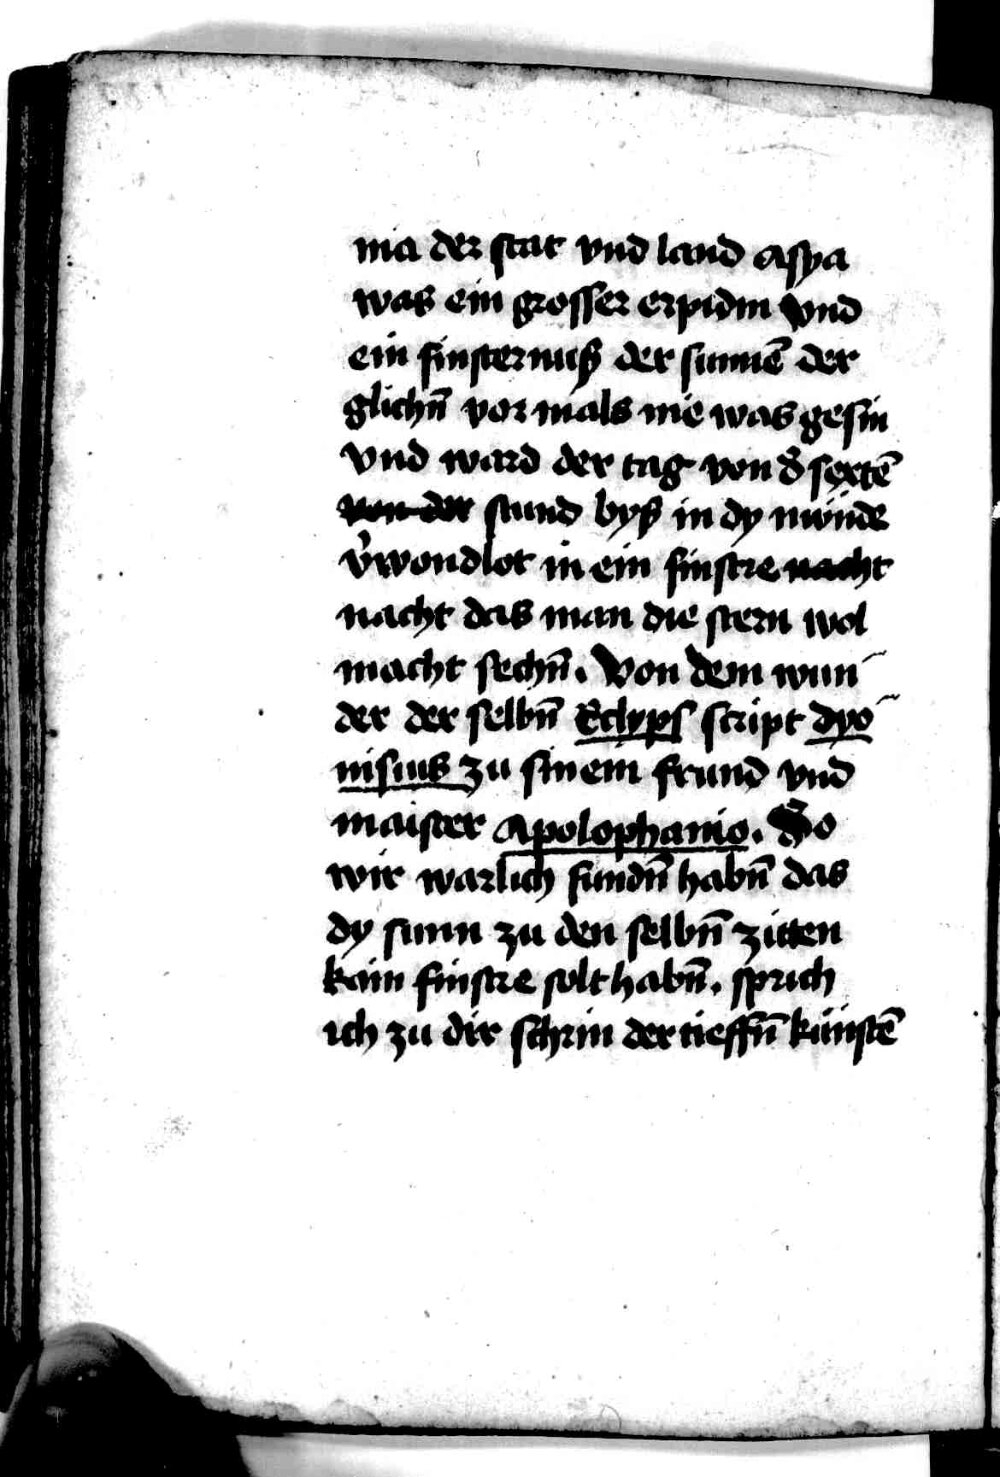 nia der stat vnd land asya
was ein grosser erpidm vnd
ein finsternuß der sunnē der
glichn̄ vor mals nie was gesin
vnd ward der tag von d̄ sextē
von der stund byß in dy nwnde
v̄wondlot in ein finstre nacht
nacht das man die stern wol
macht sechn̄. Von dem wun
der der selbn̄ Eclyps script dyo
nisius zu sinem frund vnd
maister Apolophanio. So
wir warlich fundn̄ habn̄ das
dy sunn zu den selbn̄ zitten
kain finstre solt habn̄. sprich
ich zu dir schrin der tieffn̄ künstē